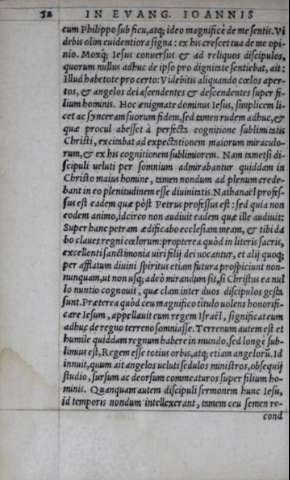 52 IN EVANG. IOANNIS
cum Philippo sub ficu, atq; ideo magnificè de me sentis. Vi
debis olim euidentiora signa : ex his crescet tua de me opi-
nio. Moxq; Iesus conuersus & ad reliquos discipulos,
quorum nullus adhuc de ipso pro dignitate sentiebat, ait :
Illud habetote pro certo: Videbitis aliquando cœlos aper-
tos, & angelos dei ascendentes & descendentes super fi-
lium hominis. Hoc ænigmate dominus Iesus, simplicem li-
cet ac synceram suorum fidem, sed tamen rudem adhuc, &
quæ procul abesset à perfecta cognitione sublimitatis
Christi, excitabat ad expectationem maiorum miraculo-
rum, & ex his cognitionem sublimiorem. Nam tametsi di-
scipuli ueluti per somnium admirabantur quiddam in
Christo maius homine, tamen nondum ad plenum crede-
bant in eo plenitudinem esse diuinitatis. Nathanaël profes-
sus est eadem quæ pòst Petrus professus est : sed quia non
eodem animo, idcirco non audiuit eadem quæ ille audiuit:
Super hanc petram ædificabo ecclesiam meam, & tibi da
bo claues regni cœlorum: propterea quòd in literis sacris,
excellenti sanctimonia uiri filij dei uocantur, et alij quoq;
per afflatum diuini spiritus etiam futura prospiciunt non-
nunquam, ut non usq; adeò mirandum sit, si Christus ea nul
lo nuntio cognouit, quæ clam inter duos discipulos gesta
sunt. Præterea quòd eum magnifico titulo uolens honorifi-
care Iesum, appellauit eum regem Israël, significat eum
adhuc de regno terreno somniasse. Terrenum autem est et
humile quiddam regnum habere in mundo, sed longe sub-
limius est, Regem esse totius orbis, atq; etiam angelorū. Id
innuit, quum ait angelos ueluti sedulos ministros, obsequij
studio, sursum ac deorsum commeaturos super filium ho-
minis. Quanquam autem discipuli sermonem hunc Iesu,
id temporis nondum intellexerant, tamen ceu semen re-
cond